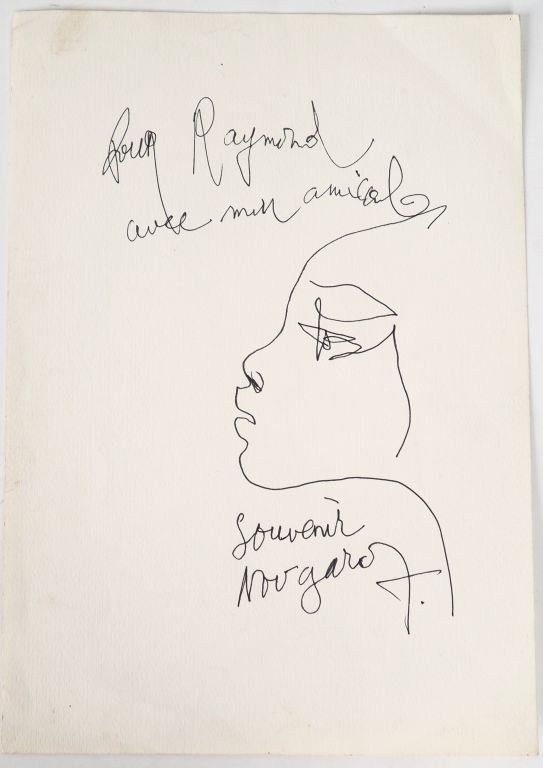 Pour Raymond
avec mon amical
Souvenir
Nougaro